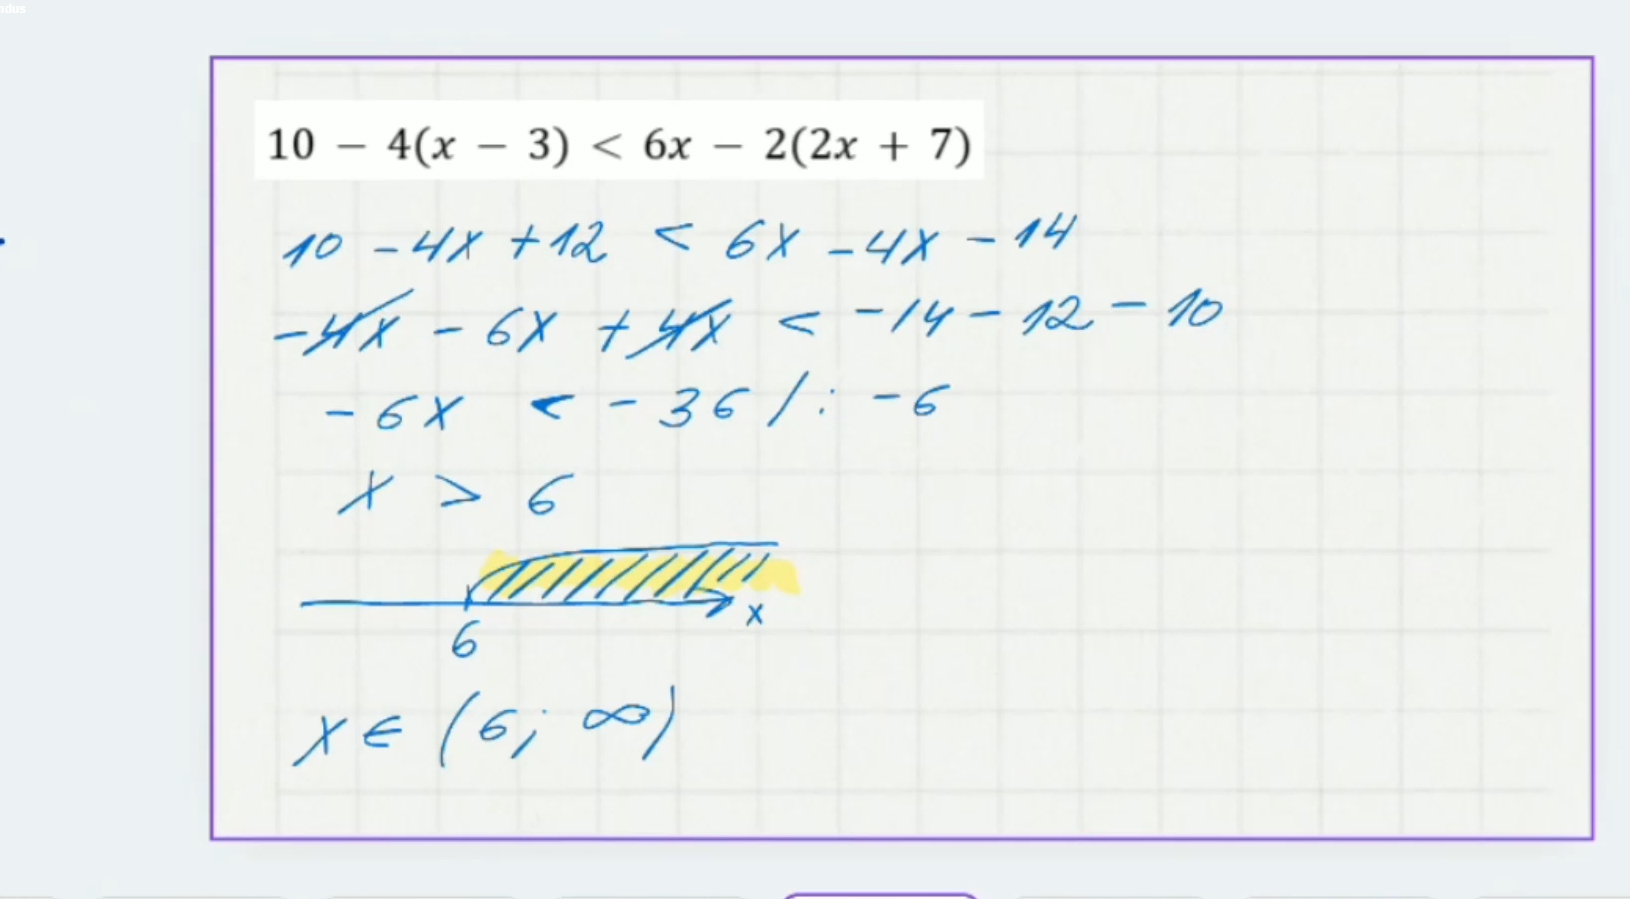 10 − 4(x − 3) < 6x − 2(2x + 7)
10 - 4x + 12 < 6x - 4x - 14
-4x - 6x + 4x < -14 - 12 - 10
-6x < -36 /: -6
x > 6
6 x
x ∈ (6; ∞)